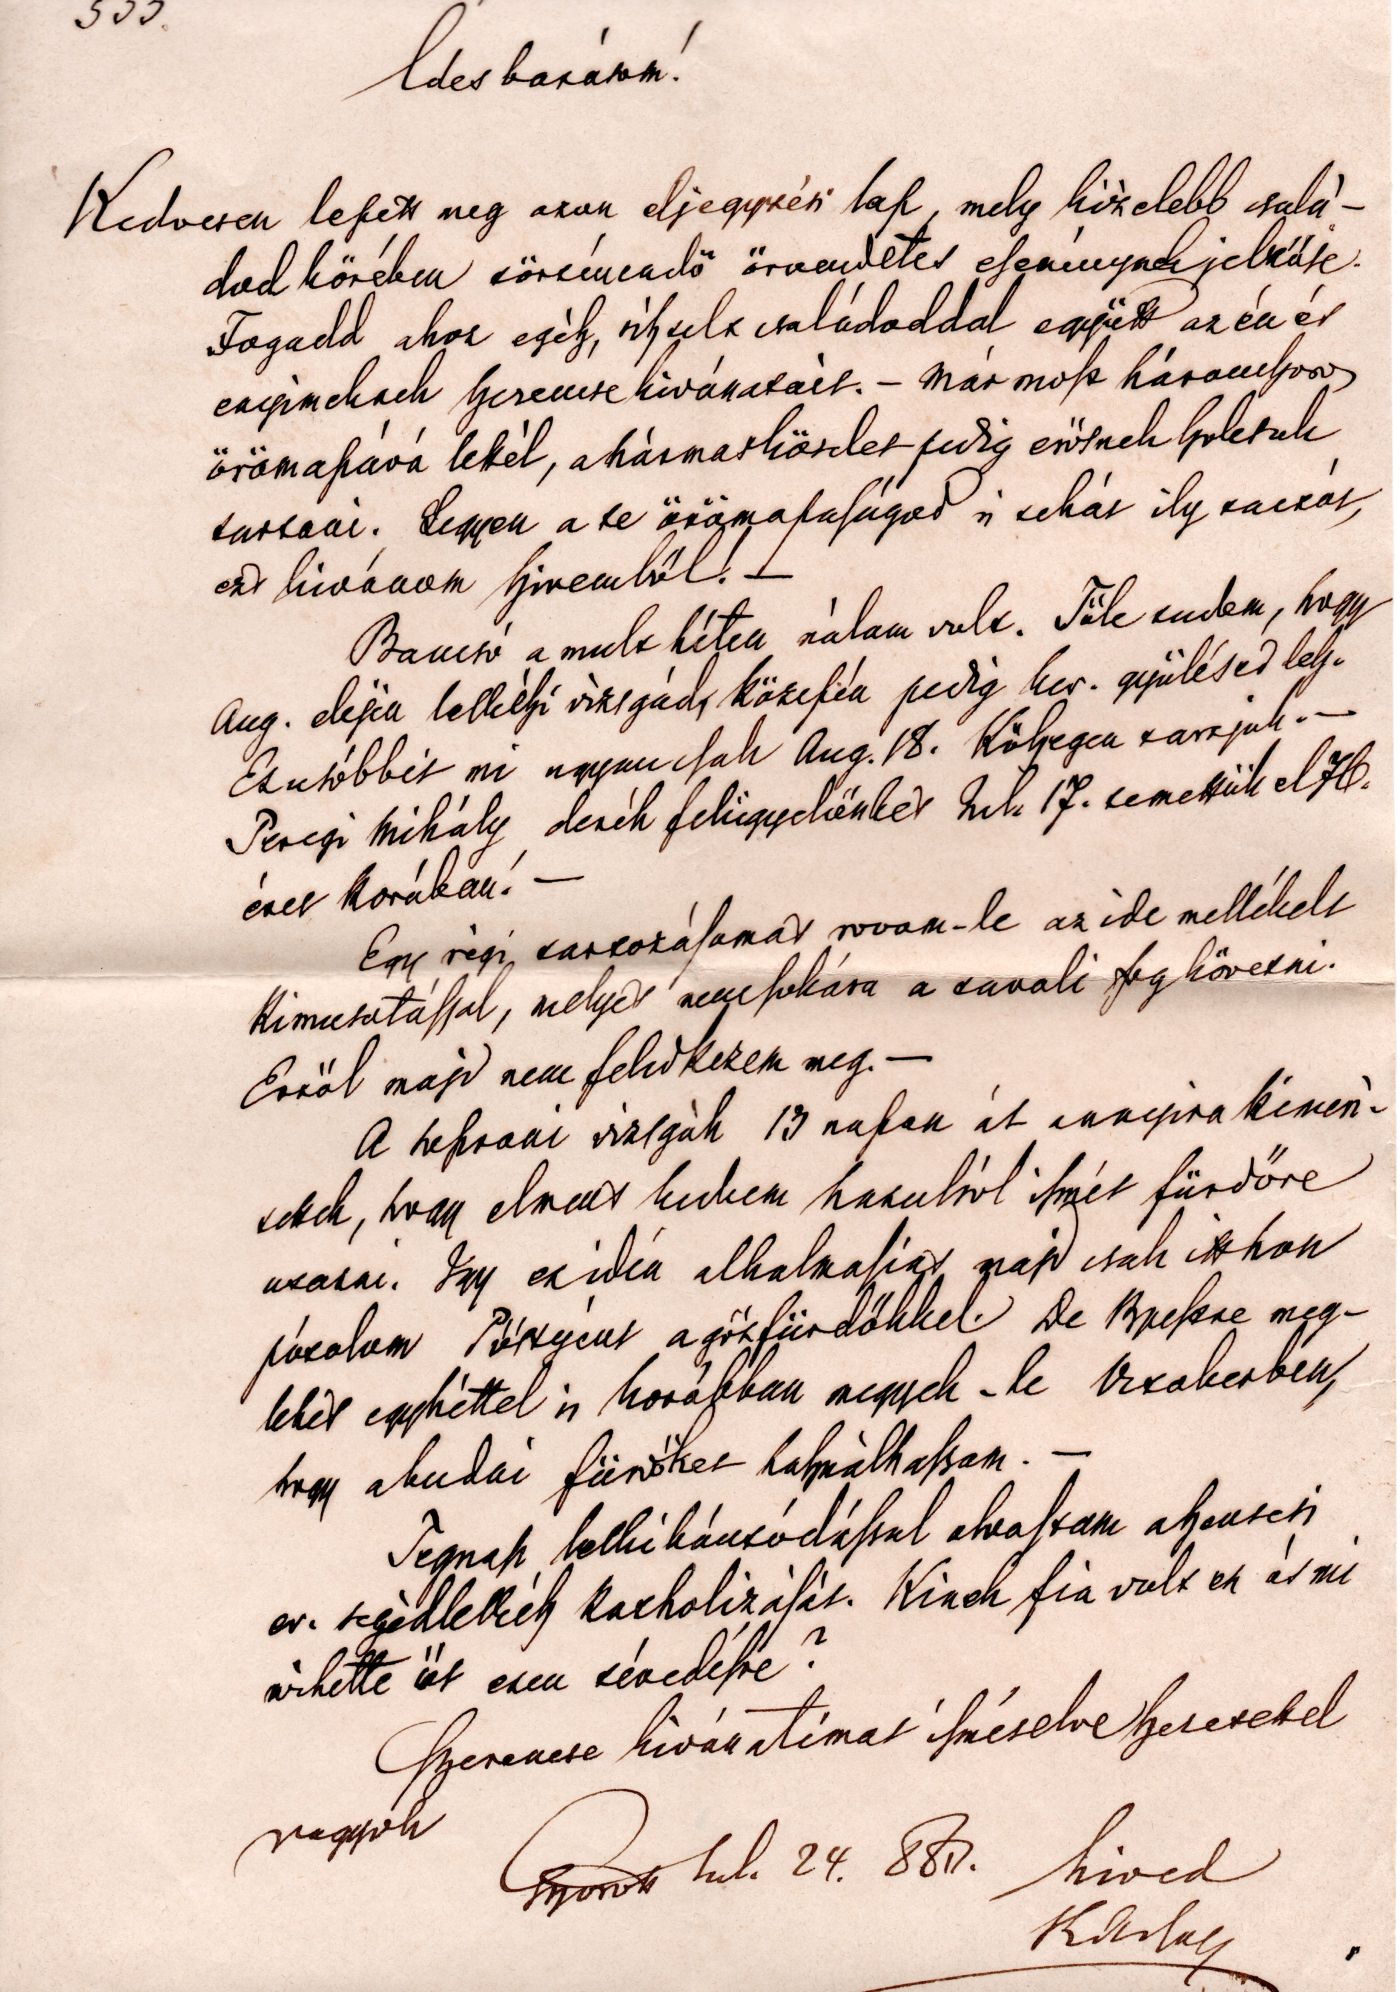 333.
Édes barátom!
Kedvesen lepett meg azon eljegyzési lap, mely közelebb csalá-
dod körében történendő örvendetes eseménynek jelzője.
Fogadd ahoz egész, tisztelt családoddal együtt az én és
enyimeknek szerencsekivánatait. – Már most háromszoros
örömapává lettél, a hármas kötelet pedig erősnek szokták
tartani. Legyen a te örömapaságod is tehát ily tartós,
ezt kivánom szivemből! –
Bancsó a mult héten nálam volt. Tőle tudom, hogy
Aug. elején lelkészi vizsgád, közepén pedig ker. gyülésed lesz.
Ez utóbbit mi ugyancsak Aug. 18. Kőszegen tartjuk. –
Peregi Mihály derék felügyelőnket Jul. 17. temettük el 76.
éves korában! –
Egy régi tartozásomat rovom-le az ide mellékelt
kimutatással, melyet nemsokára a tavali fog követni.
Erről majd nem feledkezem meg. –
A soproni vizsgák 13 napon át annyira kimeri-
tettek, hogy elment kedvem hazulról ismét fürdőre
utazni. Igy ez idén alkalmasint majd csak itthon
pótolom Pöstyént a gőzfürdőkkel. De Bpestre meg-
lehet egyhéttel is korábban megyek-le Octoberben,
hogy a budai fürdőket használhassam. –
Tegnap lelki háborodással olvastam a szentesi
ev. segédlelkész katholizálását. Kinek fia volt ez és mi
vihette őt ezen tévedésre?
Szerencse kivánatimat ismételve szeretettel
vagyok
Jul. 24. 887. hived
Karsay